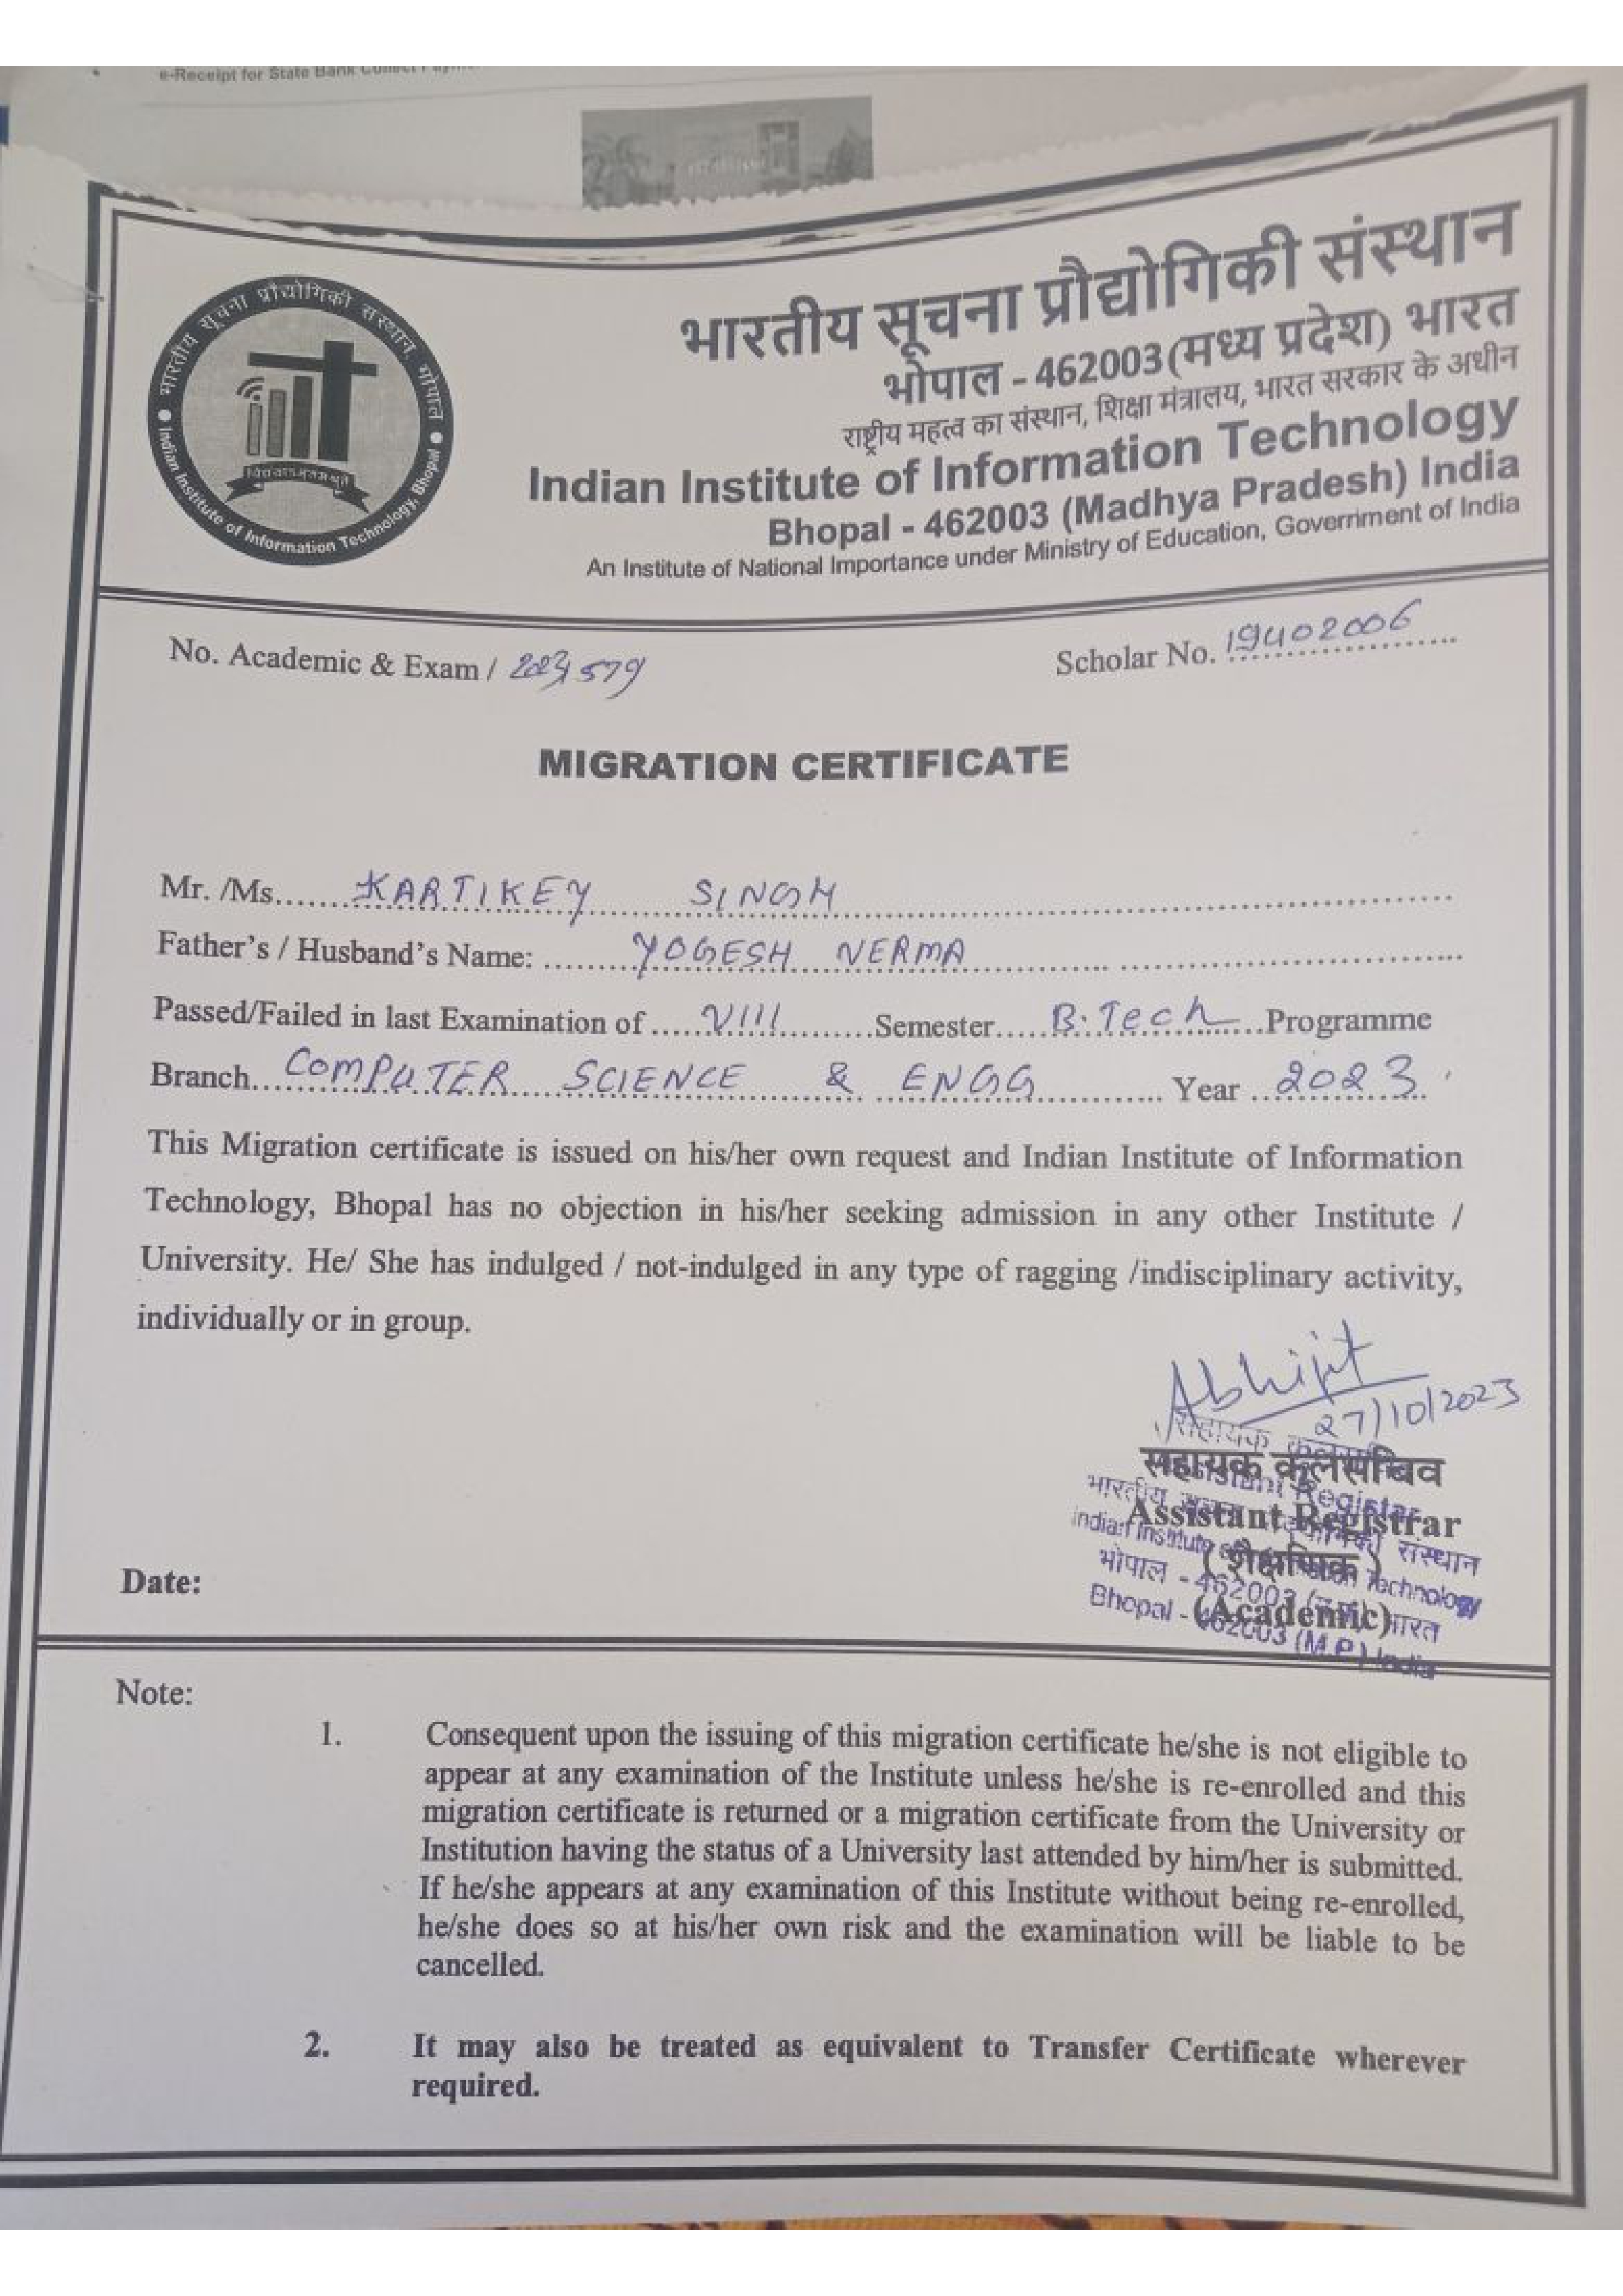 e-Receipt for State Bank Collect
भारतीय सूचना प्रौद्योगिकी संस्थान, भोपाल
Indian Institute of Information Technology, Bhopal
भारतीय सूचना प्रौद्योगिकी संस्थान
भोपाल - 462003 (मध्य प्रदेश) भारत
राष्ट्रीय महत्व का संस्थान, शिक्षा मंत्रालय, भारत सरकार के अधीन
Indian Institute of Information Technology
Bhopal - 462003 (Madhya Pradesh) India
An Institute of National Importance under Ministry of Education, Government of India
No. Academic & Exam / 2023/579 Scholar No. 19U02006
MIGRATION CERTIFICATE
Mr. /Ms. KARTIKEY SINGH
Father's / Husband's Name: YOGESH VERMA
Passed/Failed in last Examination of VIII Semester B.Tech Programme
Branch COMPUTER SCIENCE & ENGG Year 2023
This Migration certificate is issued on his/her own request and Indian Institute of Information
Technology, Bhopal has no objection in his/her seeking admission in any other Institute /
University. He/ She has indulged / not-indulged in any type of ragging /indisciplinary activity,
individually or in group.
Abhijit
27/10/2023
सहायक कुलसचिव
सहायक कुलसचिव
Assistant Registrar
भारतीय सूचना प्रौद्योगिकी संस्थान
Assistant Registrar
Indian Institute of Information Technology
(शैक्षणिक)
भोपाल - 462003 (म.प्र.) भारत
(Academic)
Bhopal - 462003 (M.P.) India
Date:
Note:
1. Consequent upon the issuing of this migration certificate he/she is not eligible to
appear at any examination of the Institute unless he/she is re-enrolled and this
migration certificate is returned or a migration certificate from the University or
Institution having the status of a University last attended by him/her is submitted.
If he/she appears at any examination of this Institute without being re-enrolled,
he/she does so at his/her own risk and the examination will be liable to be
cancelled.
2. It may also be treated as equivalent to Transfer Certificate wherever
required.